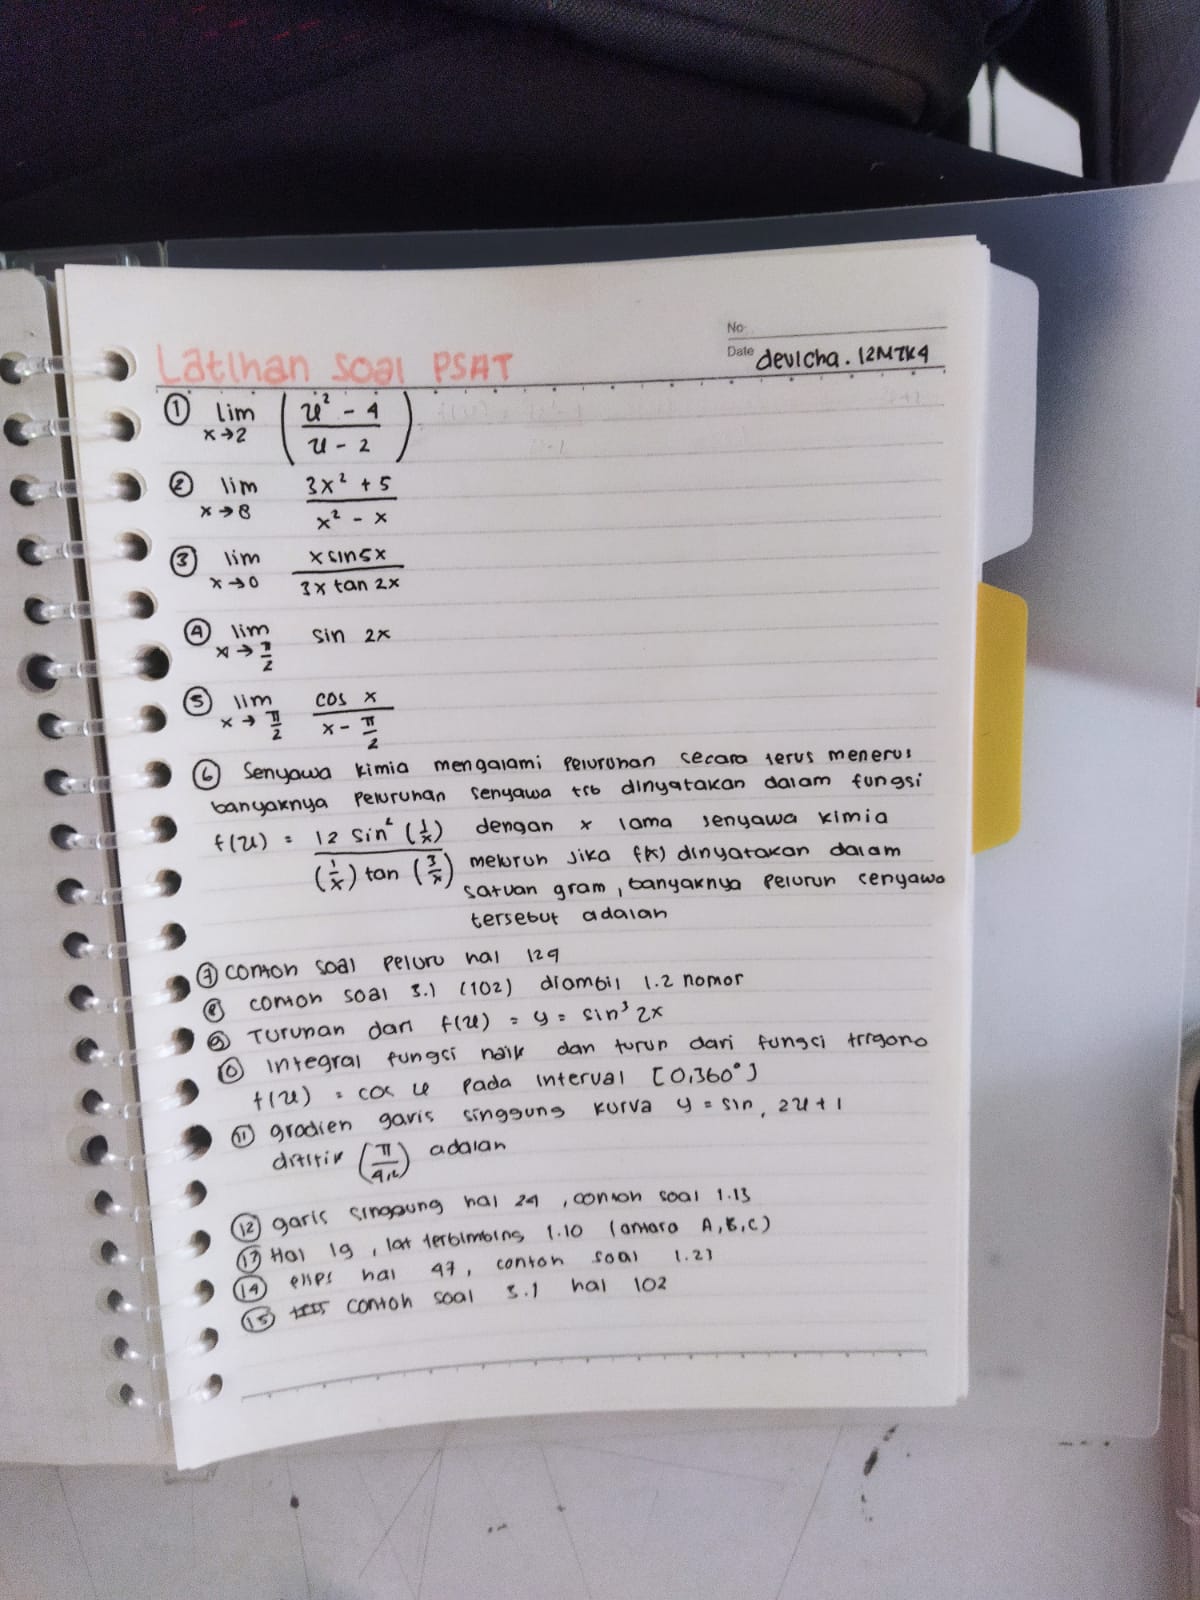 No.
Date devicha. 12MTK4
Latihan soal PSAT
① lim x→2 (x² - 4 / x - 2)
② lim x→8 3x² + 5 / x² - x
③ lim x→0 x sin5x / 3x tan 2x
④ lim x→π/2 sin 2x
⑤ lim x→π/2 cos x / x - π/2
⑥ Senyawa kimia mengalami peluruhan secara terus menerus
banyaknya peluruhan senyawa trb dinyatakan dalam fungsi
f(x) = 12 sin² (1/x) / (1/x) tan (3/x) dengan x lama senyawa kimia
meluruh jika f(x) dinyatakan dalam
satuan gram, banyaknya pelurun senyawa
tersebut adalah
⑦ contoh soal peluru hal 129
⑧ contoh soal 3.1 (102) diambil 1.2 nomor
⑨ Turunan dari f(x) = y = sin³ 2x
⑩ Integral fungsi naik dan turun dari fungsi trigono
f(x) = cos x pada interval [0,360°]
⑪ gradien garis singgung kurva y = sin, 2x + 1
dititik (π/4,2) adalah
⑫ garis singgung hal 24, contoh soal 1.13
⑬ Hal 19, lat terbimbing 1.10 (antara A,B,C)
⑭ elips hal 47, contoh soal 1.23
⑮ contoh soal 3.1 hal 102